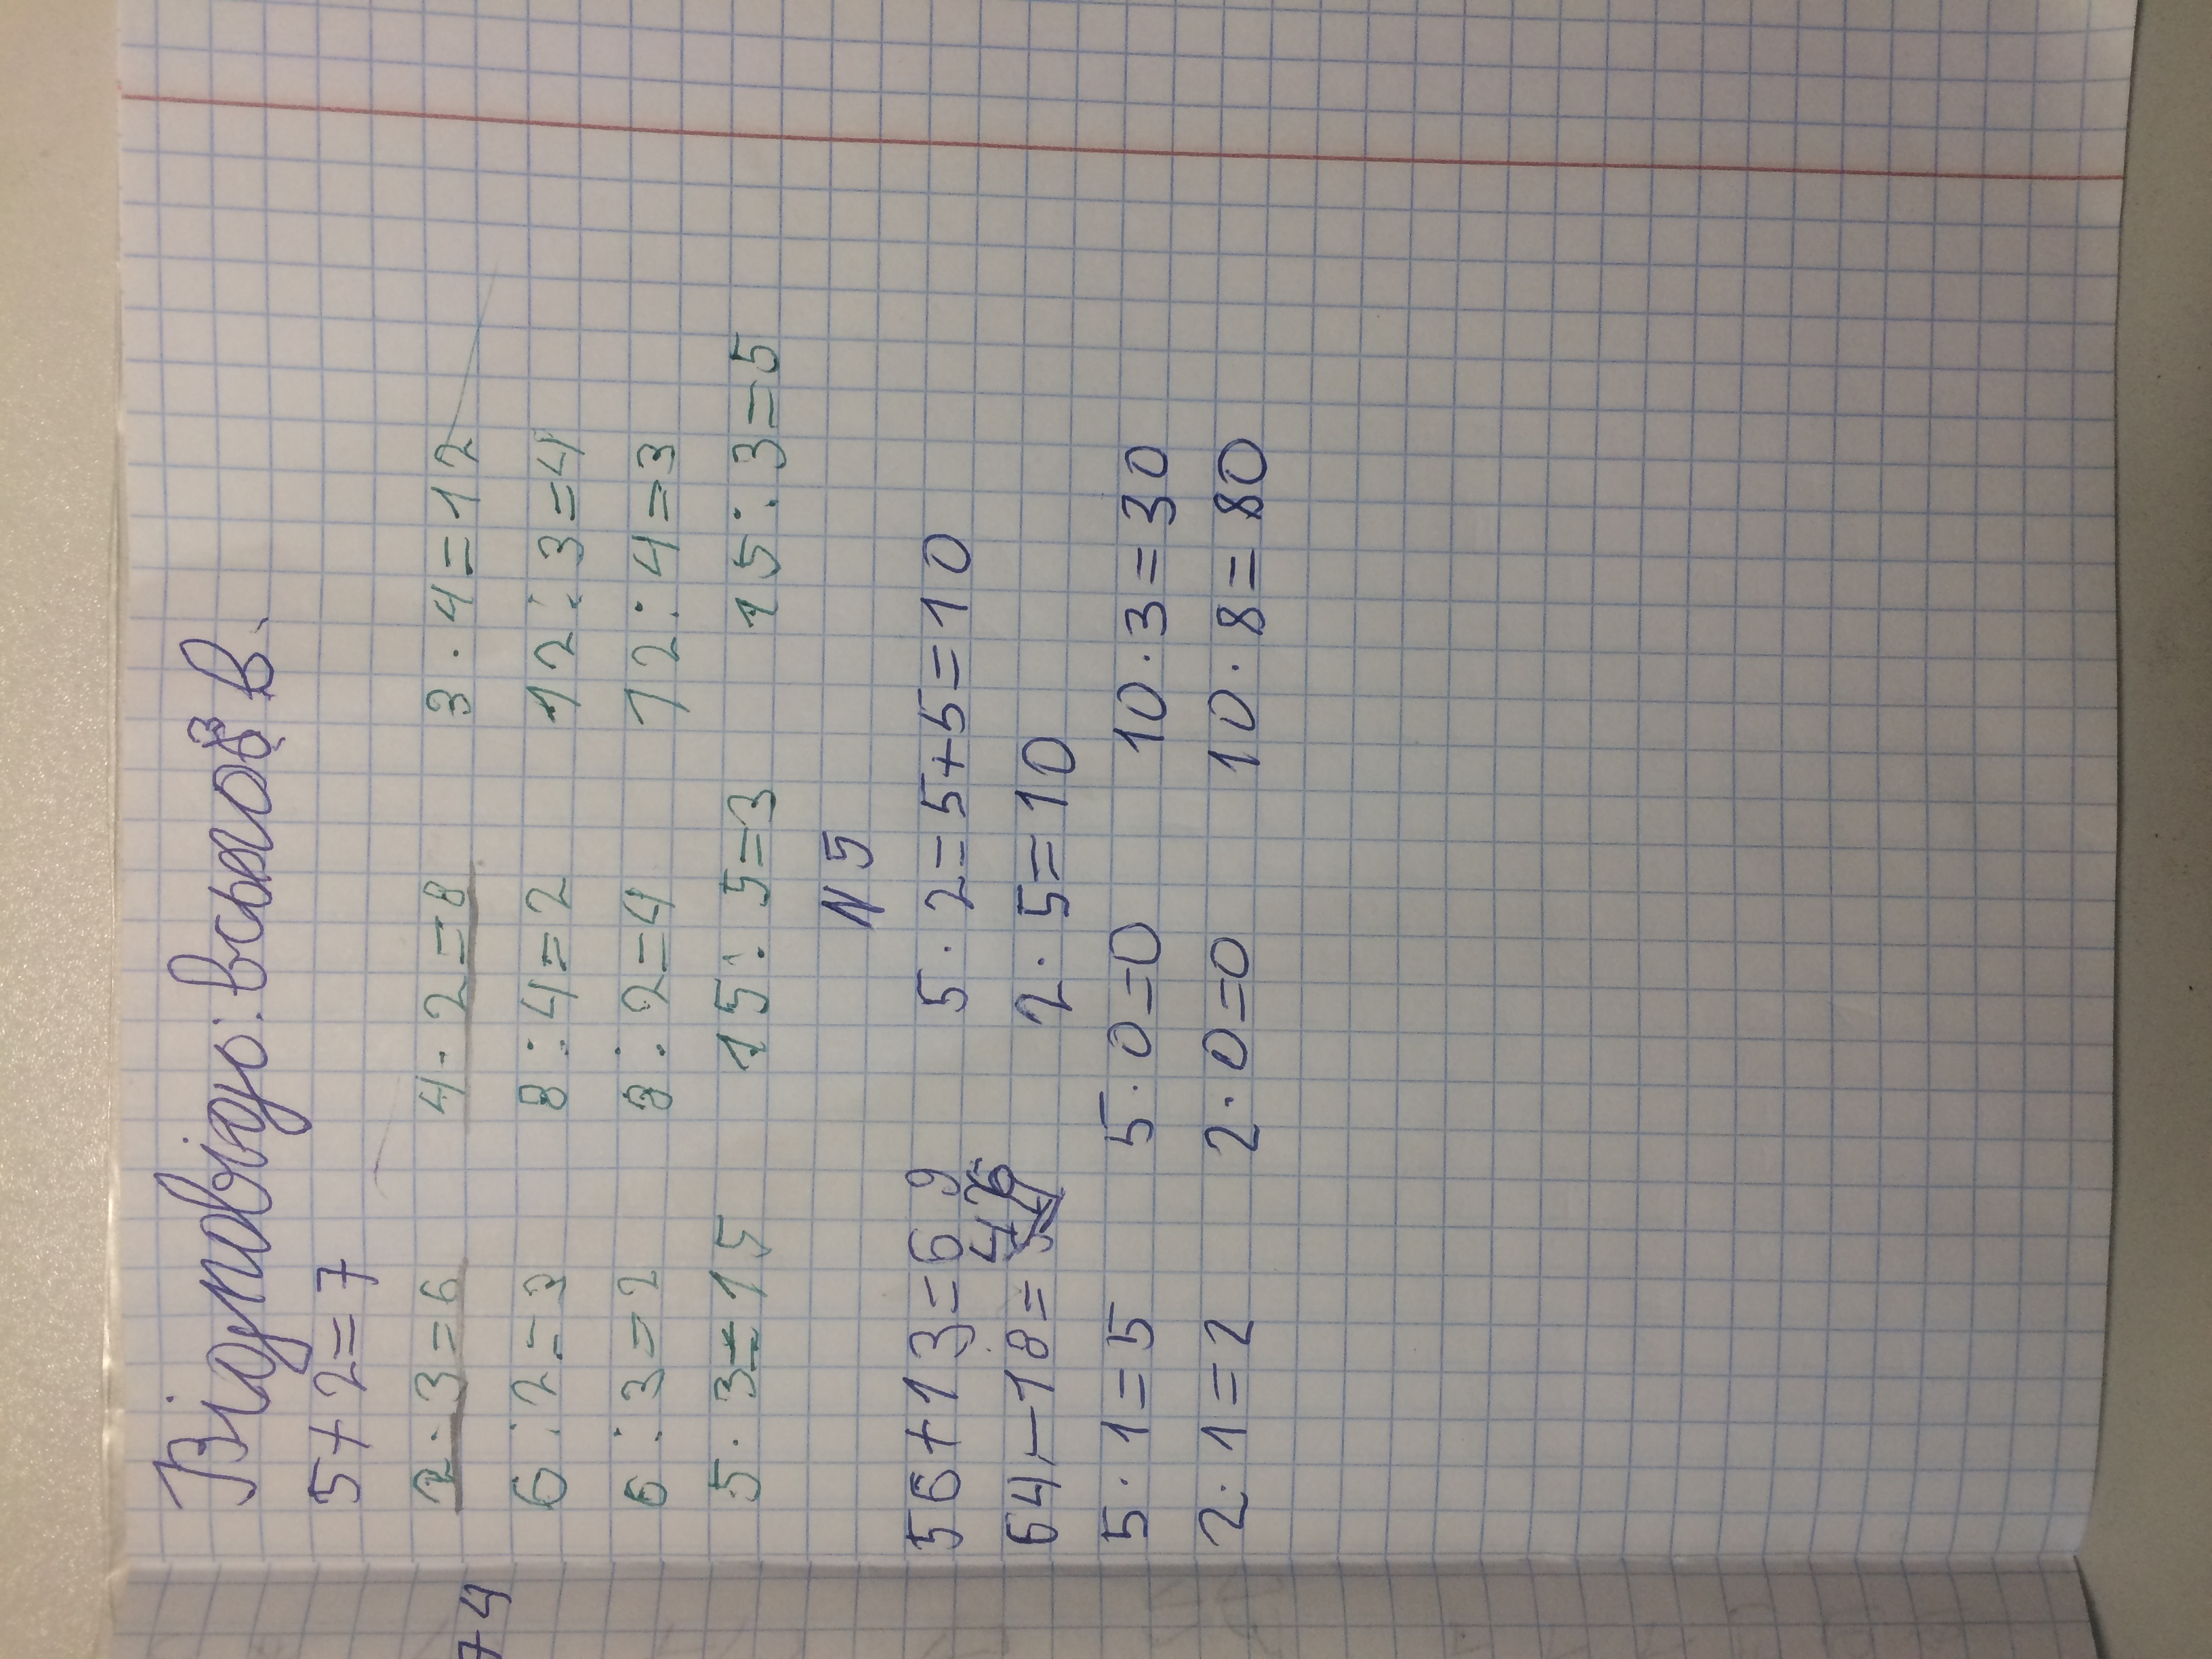 Відповідь: вагонів в.
5+2=7
2·3=6 4·2=8 3·4=12
6:2=3 8:4=2 12:3=4
6:3=2 8:2=4 12:4=3
5·3=15 15:5=3 15:3=5
N5
56+13=69 5·2=5+5=10
64-18=46 2·5=10
5·1=5 5·0=0 10·3=30
2·1=2 2·0=0 10·8=80
74